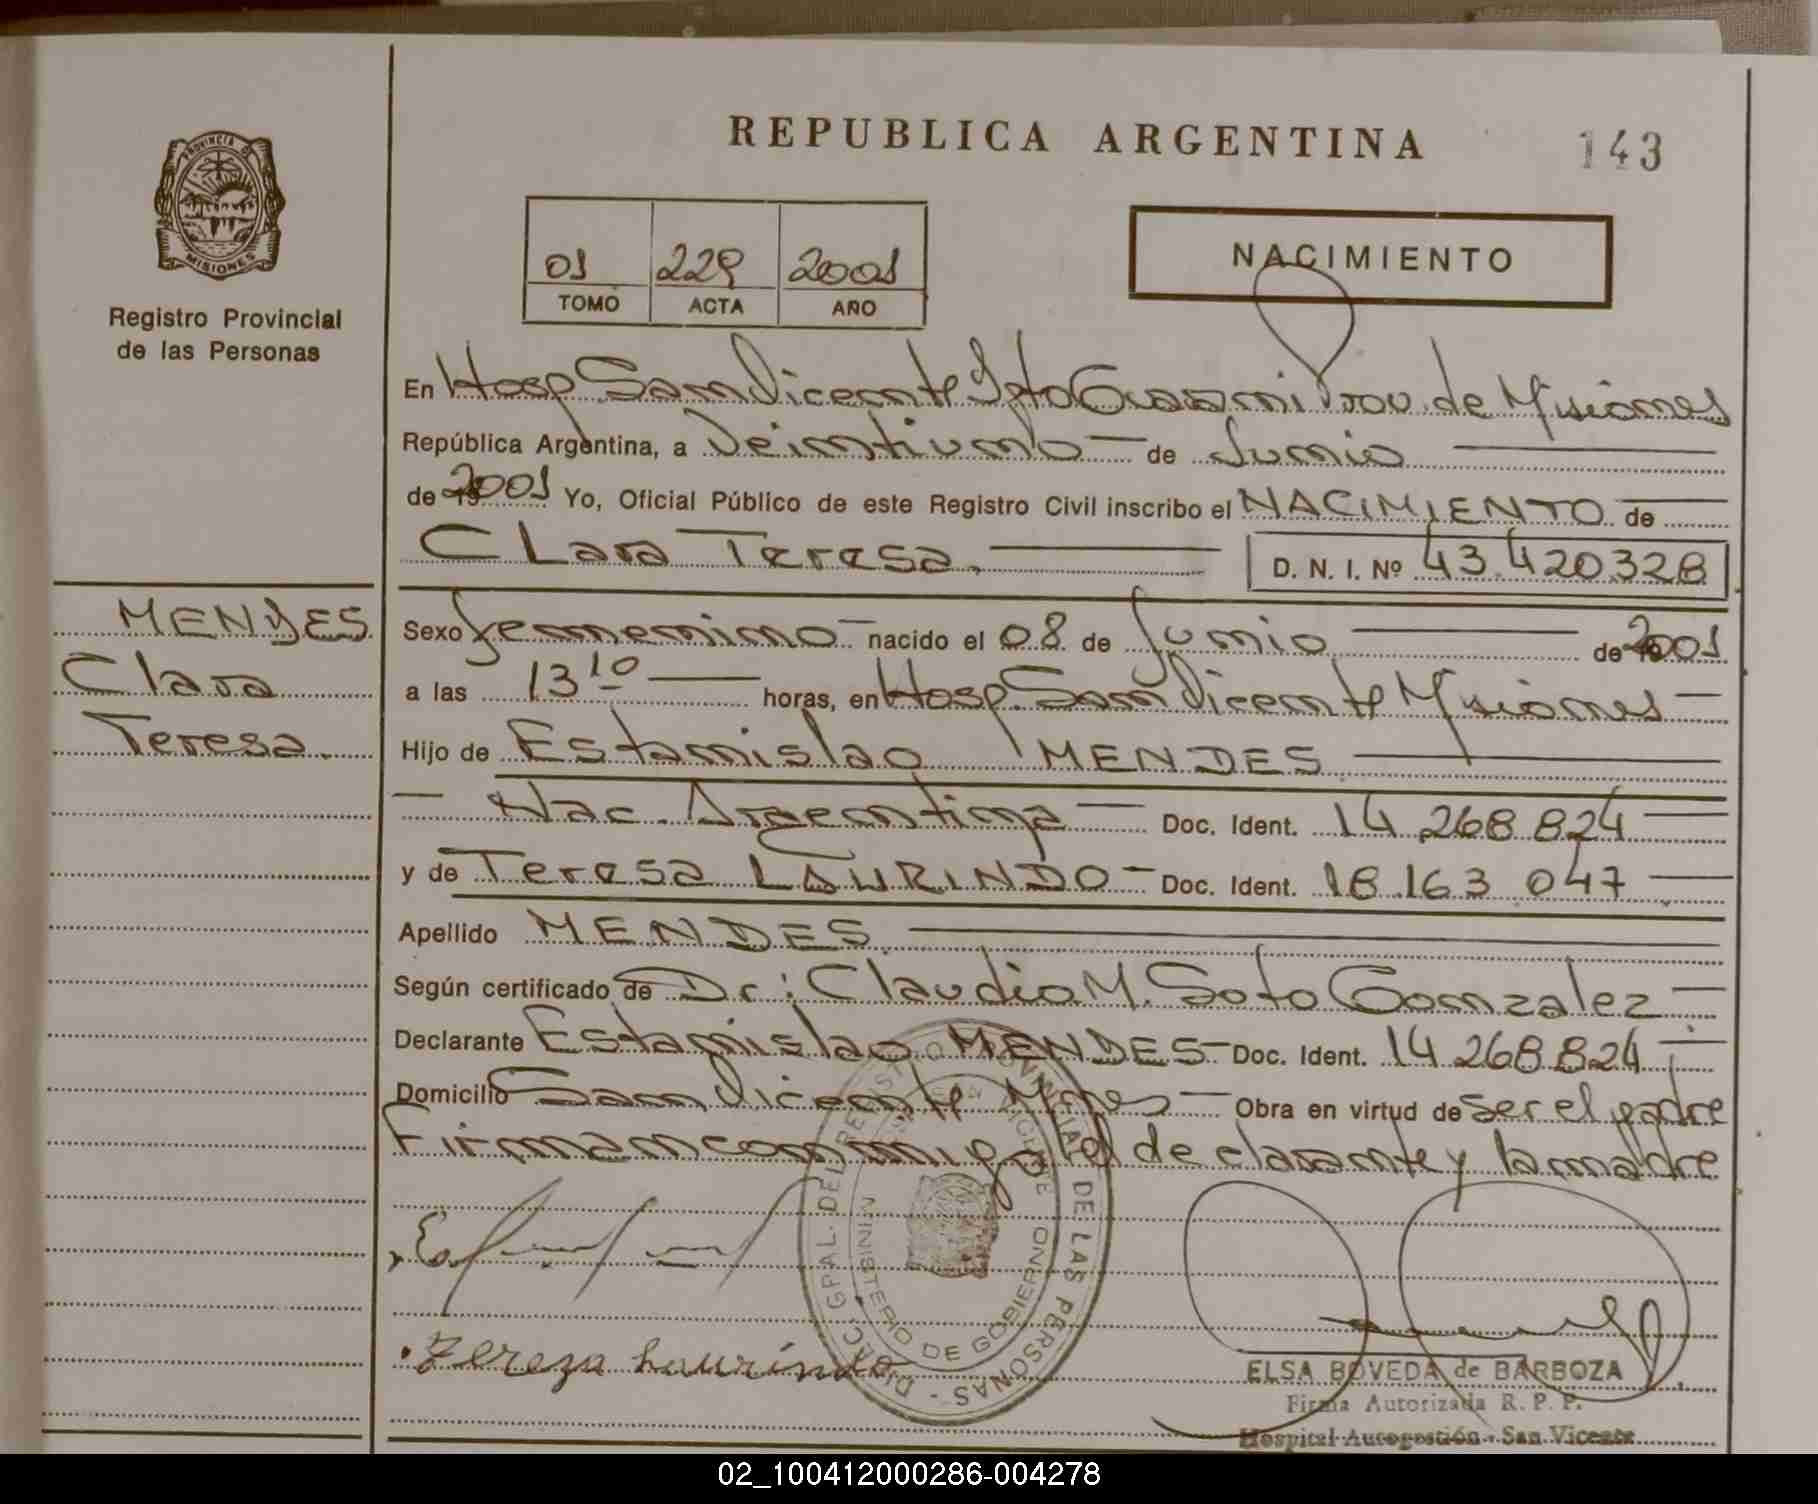 REPUBLICA ARGENTINA
143
PROVINCIA DE
MISIONES
Registro Provincial
de las Personas
01 229 2001
TOMO ACTA AÑO
NACIMIENTO
En Hosp San Vicente Dpto Guarani Prov. de Misiones
República Argentina, a Veintiuno — de Junio
de 2001 Yo, Oficial Público de este Registro Civil inscribo el NACIMIENTO de
Clara Teresa. D. N. I. Nº 43.420.328
MENDES
Clara
Teresa.
Sexo femenino nacido el 08 de Junio de 2001
a las 13 10 horas, en Hosp. San Vicente Misiones
Hijo de Estanislao MENDES
Nac. Argentina Doc. Ident. 14.268.824
y de Teresa LAURINDO Doc. Ident. 18.163.047
Apellido MENDES
Según certificado de Dr: Claudio M. Soto Gonzalez
Declarante Estanislao MENDES Doc. Ident. 14.268.824
Domicilio San Vicente Mnes Obra en virtud de ser el padre
Firman conmigo el declarante y la madre
Tereza Laurindo
DIRECC. GRAL. DEL REGISTRO PROVINCIAL DE LAS PERSONAS
MINISTERIO DE GOBIERNO
ELSA BOVEDA de BARBOZA
Firma Autorizada R. P. P.
Hospital Autogestión - San Vicente
02_100412000286-004278